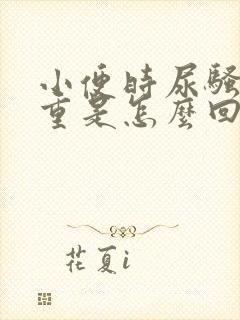 小便時尿騷
重是怎麼回
花夏i